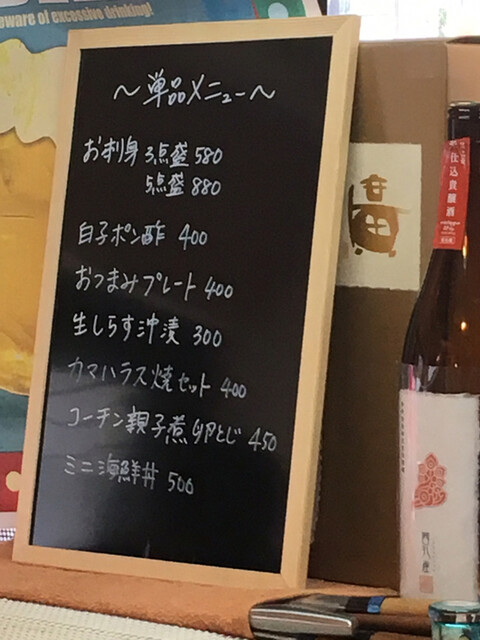 eware of excessive drinking!
～単品メニュー～
お刺身 3点盛 580
5点盛 880
白子ポン酢 400
おつまみプレート 400
生しらす沖漬 300
カマハラス焼セット 400
コーチン親子煮卵とじ 450
ミニ海鮮丼 500
仕込貴醸酒